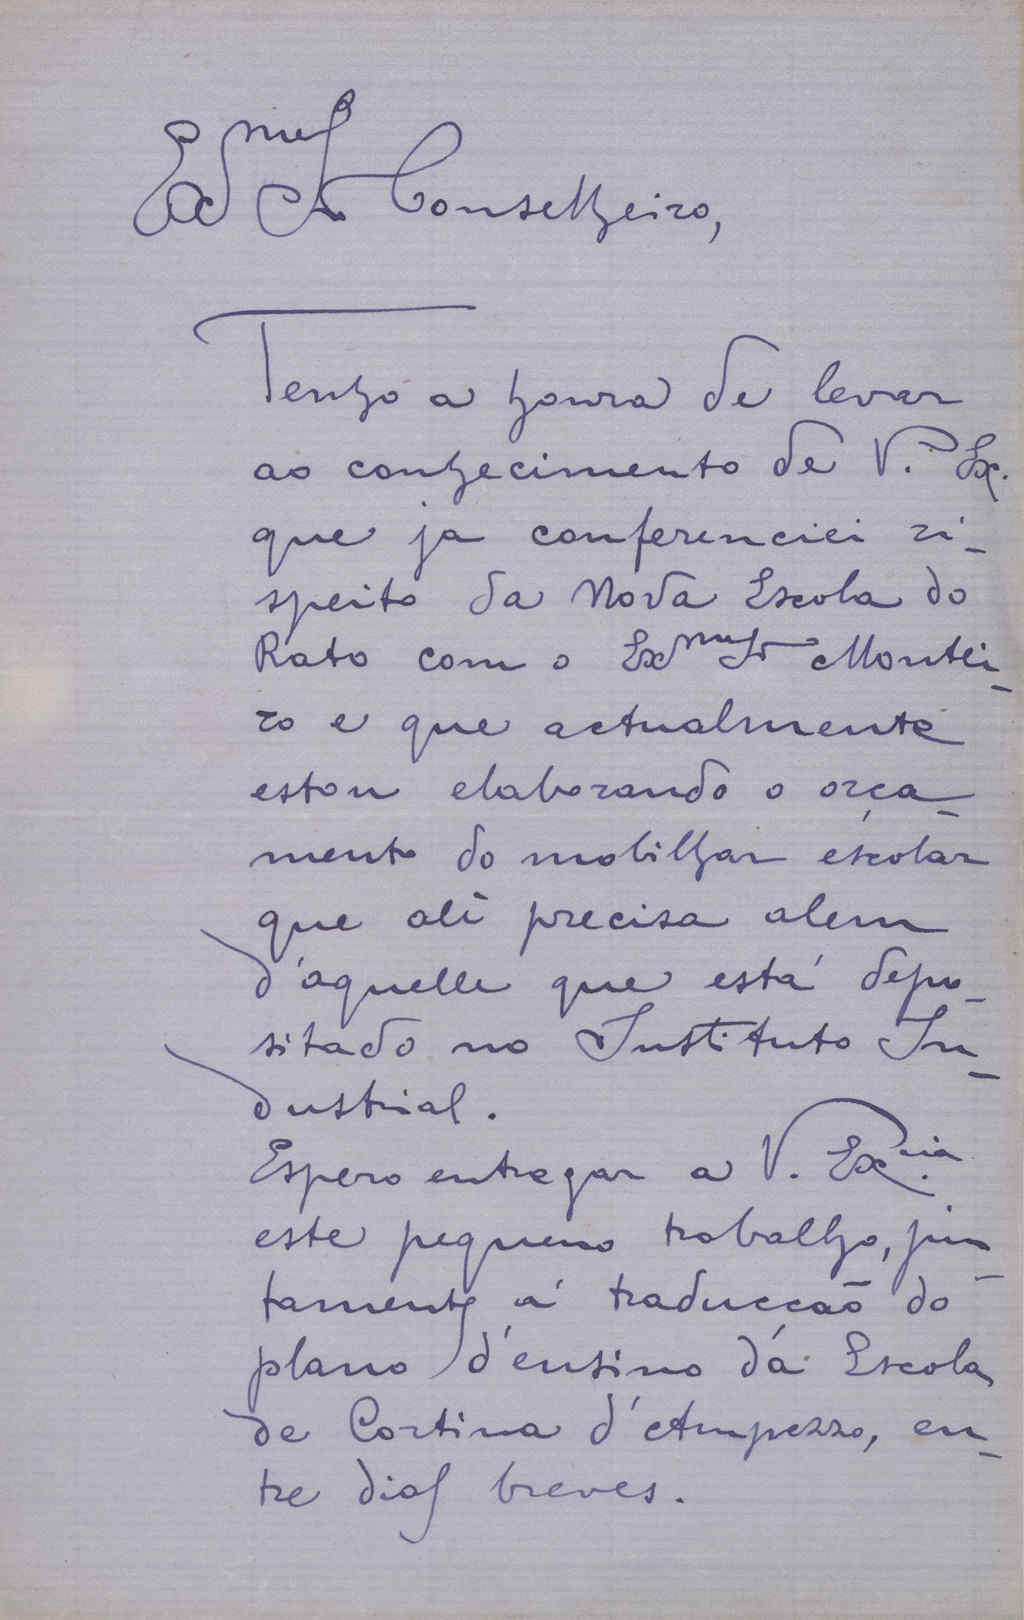 Ex.mo Sr. Conselheiro,
Tenho a honra de levar
ao conhecimento de V. Ex.
que ja conferenciei ri-
speito da Nova Escola do
Rato com o Exmo Sr Montei-
ro e que actualmente
estou elaborando o orça-
mento do mobilhar escolar
que ali precisa alem
d'aquelle que está depo-
sitado no Instituto In-
dustrial.
Espero entregar a V. Ex.cia
este pequeno trabalho, jun-
tamente á traducção do
plano d'ensino da Escola
de Cortina d'Ampezzo, en-
tre dias breves.